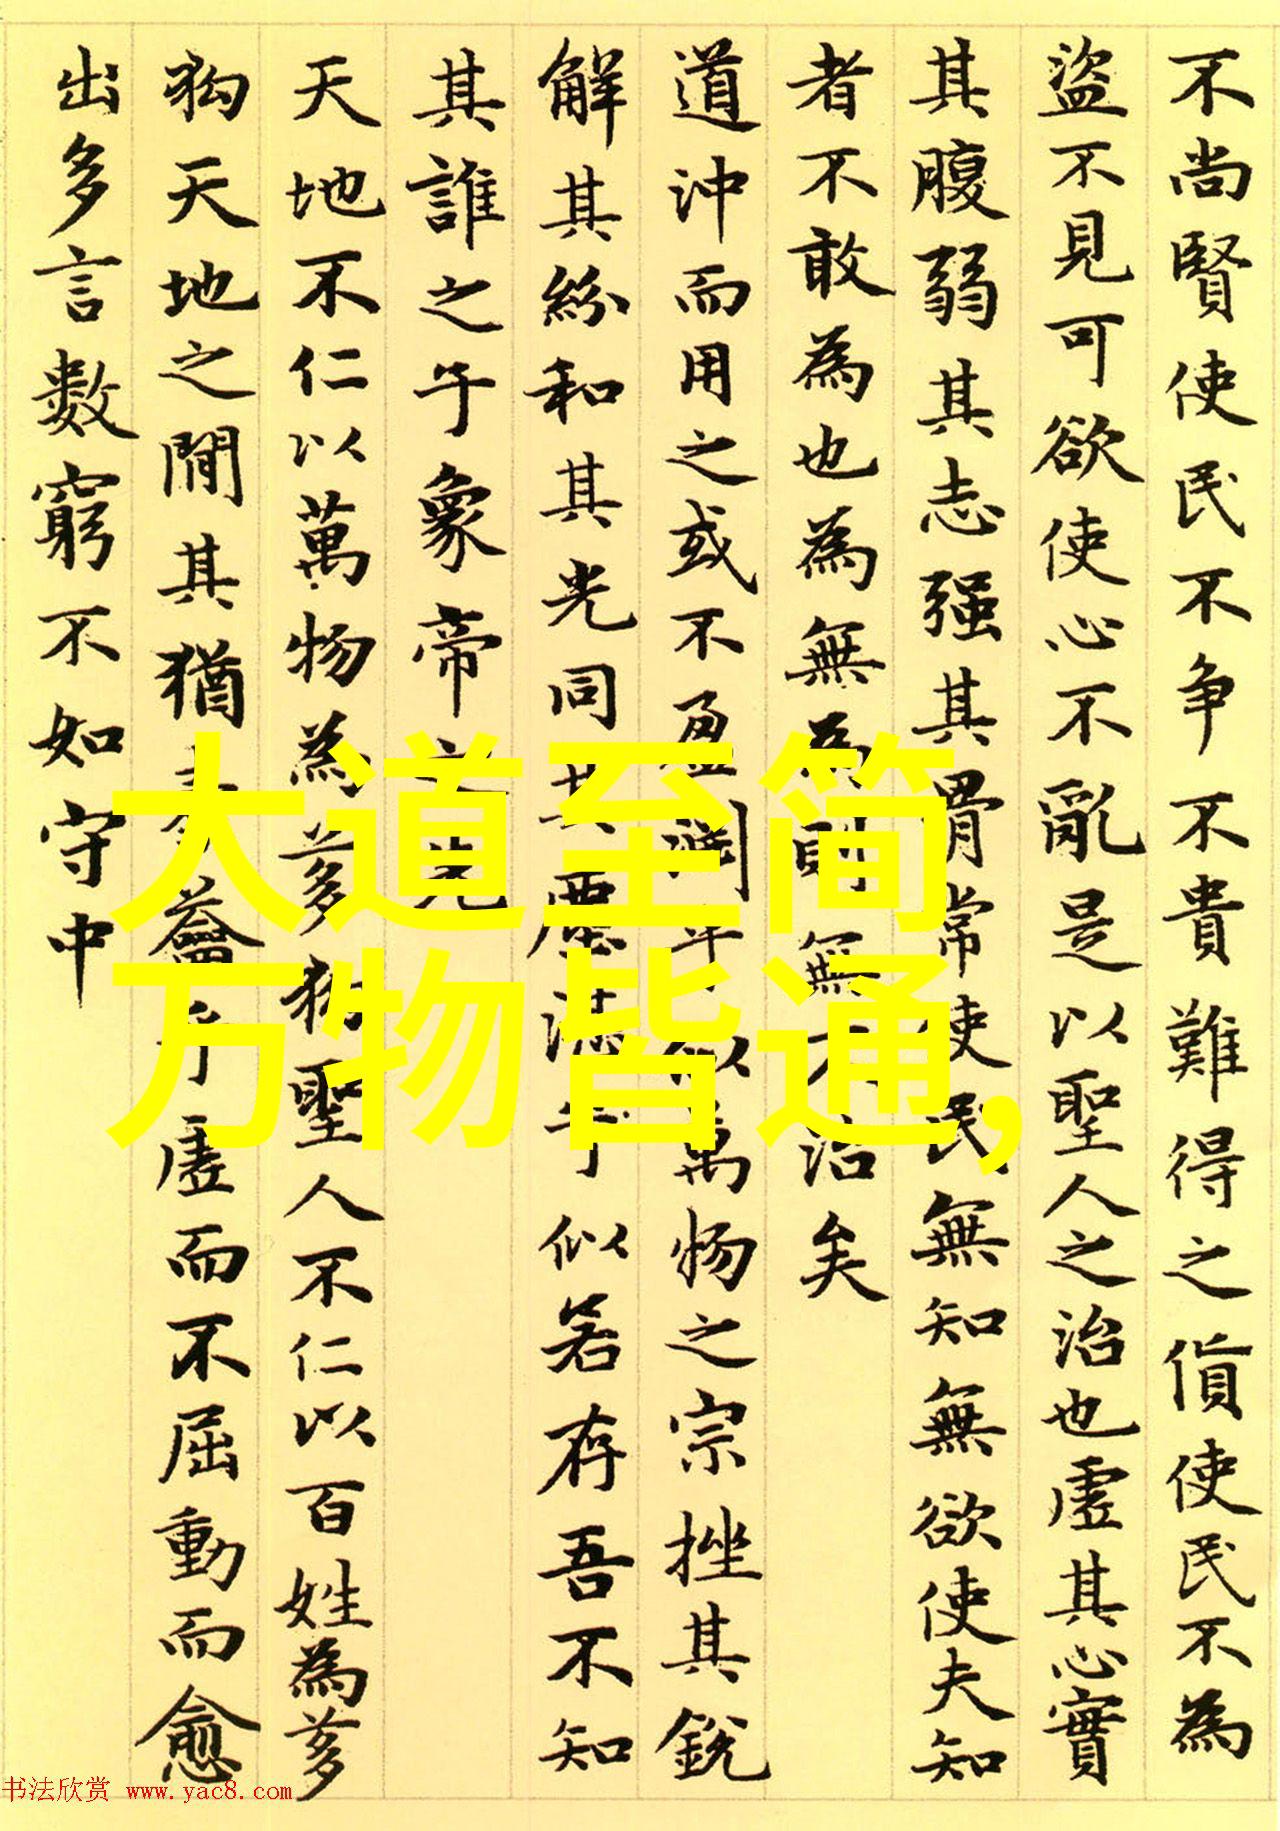 不尚賢使民不争不貴難得之貨使民不為
盜不見可欲使心不亂是以聖人之治也虛其心實
其腹弱其志强其骨常使民無知無欲使夫知
者不敢為也為無為則無不治矣
道沖而用之或不盈淵乎似萬物之宗挫其銳
解其紛和其光同其塵湛乎似若存吾不知
其誰之子象帝之先
天地不仁以萬物為芻狗聖人不仁以百姓為芻
狗天地之間其猶橐籥乎虛而不屈動而愈
出多言數窮不如守中
大道至简
万物皆通,
书法欣赏 www.yac8.com